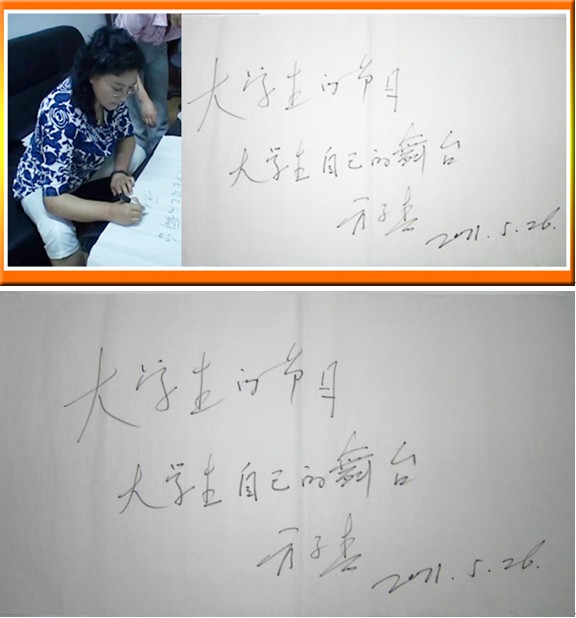 大学生的节目
大学生自己的舞台
方子春
2011.5.26.
大学生的节目
大学生自己的舞台
方子春
2011.5.26.